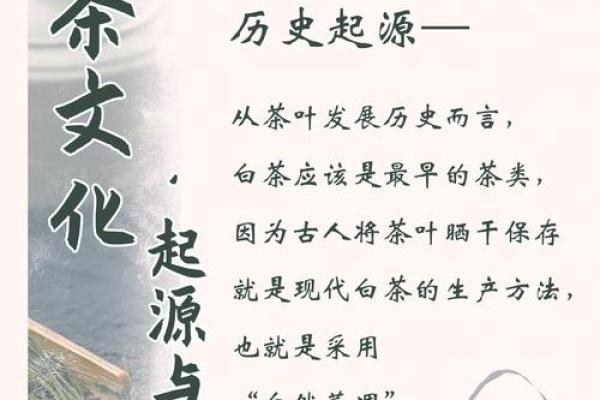 茶文化
·起源与
历史起源—
从茶叶发展历史而言，
白茶应该是最早的茶类，
因为古人将茶叶晒干保存
就是现代白茶的生产方法，
也就是采用